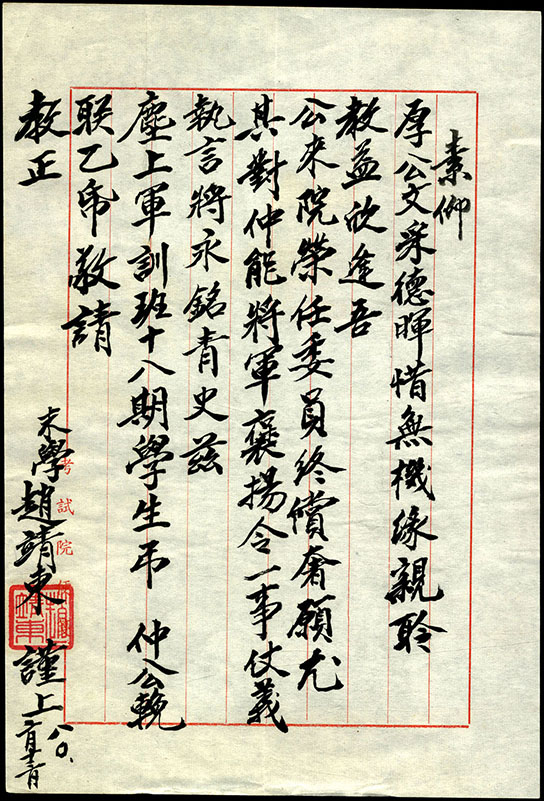 素仰
厚公文采德暉惜無機緣親聆
教益欣逢吾
公來院榮任委員終償奢願尤
其對仲能將軍褒揚令一事仗義
執言將永銘青史茲
塵上軍訓班十八期學生弔 仲公輓
联乙帋敬請
教正
末學趙靖東 謹上
八〇、
考試院